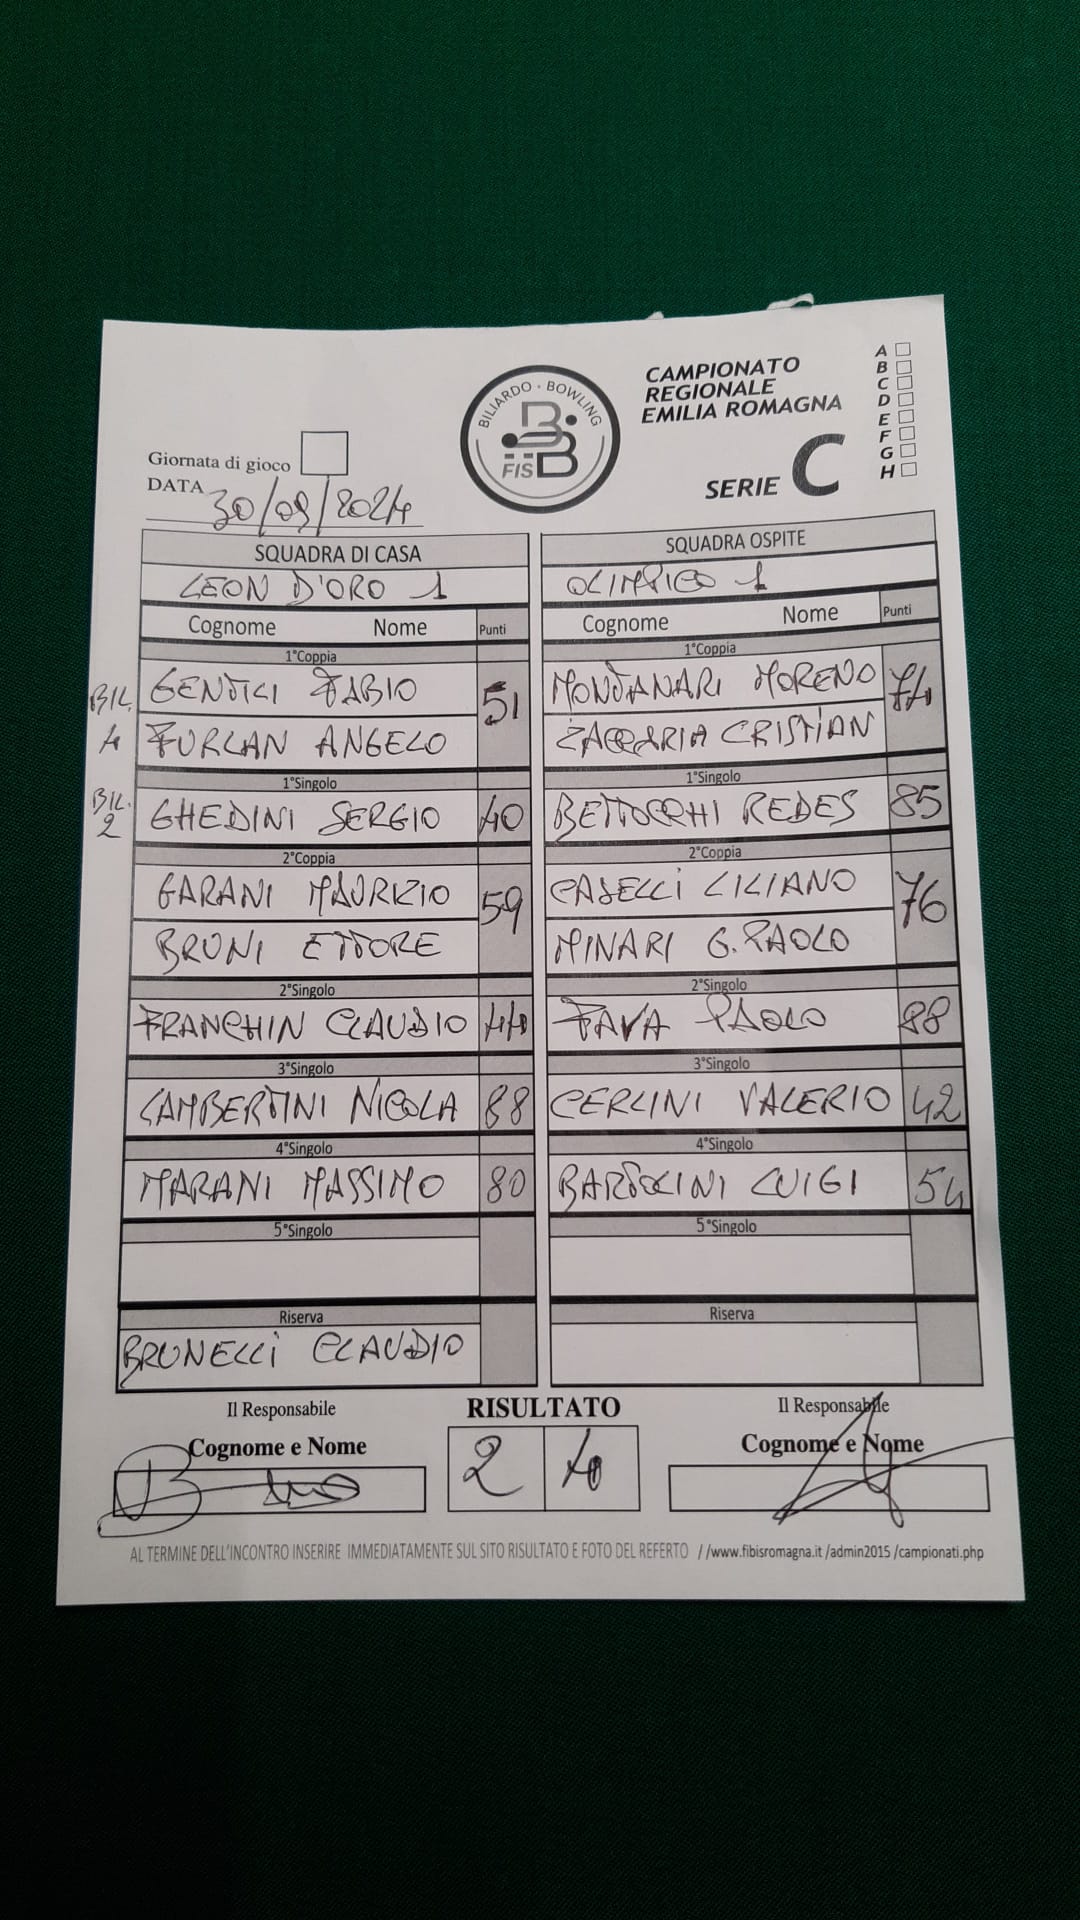 BILIARDO - BOWLING
FISBB
CAMPIONATO
REGIONALE
EMILIA ROMAGNA
SERIE C
A
B
C
D
E
F
G
H
Giornata di gioco
DATA 30/09/2024
SQUADRA DI CASA SQUADRA OSPITE
LEON D'ORO 1 OLIMPICO 1
Cognome Nome Punti Cognome Nome Punti
1°Coppia 1°Coppia
BIL. GENTILI FABIO 51 MONTANARI MORENO 74
4 FURLAN ANGELO ZACCARIA CRISTIAN
1°Singolo 1°Singolo
BIL. 2 GHEDINI SERGIO 40 BETTOCCHI REDES 85
2°Coppia 2°Coppia
GARANI MAURIZIO 59 CASELLI LILIANO 76
BRUNI ETTORE MINARI G. PAOLO
2°Singolo 2°Singolo
FRANCHIN CLAUDIO 44 FAVA PAOLO 88
3°Singolo 3°Singolo
LAMBERTINI NICOLA 88 CERLINI VALERIO 42
4°Singolo 4°Singolo
MARANI MASSIMO 80 BARTOLINI LUIGI 54
5°Singolo 5°Singolo
Riserva Riserva
BRUNELLI CLAUDIO
Il Responsabile RISULTATO Il Responsabile
Cognome e Nome 2 4 Cognome e Nome
AL TERMINE DELL'INCONTRO INSERIRE IMMEDIATAMENTE SUL SITO RISULTATO E FOTO DEL REFERTO //www.fibisromagna.it /admin2015 /campionati.php